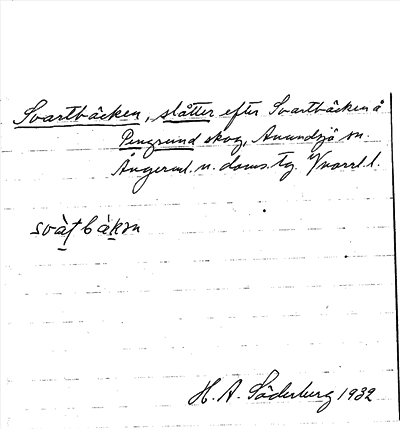 Svartbäcken, slåtter efter Svartbäcken å
Pengsund skog, Anundsjö sn.
Ångerml. n. doms. tg. V norrl. l.
svàt bàkən
H. A. Söderburg 1932